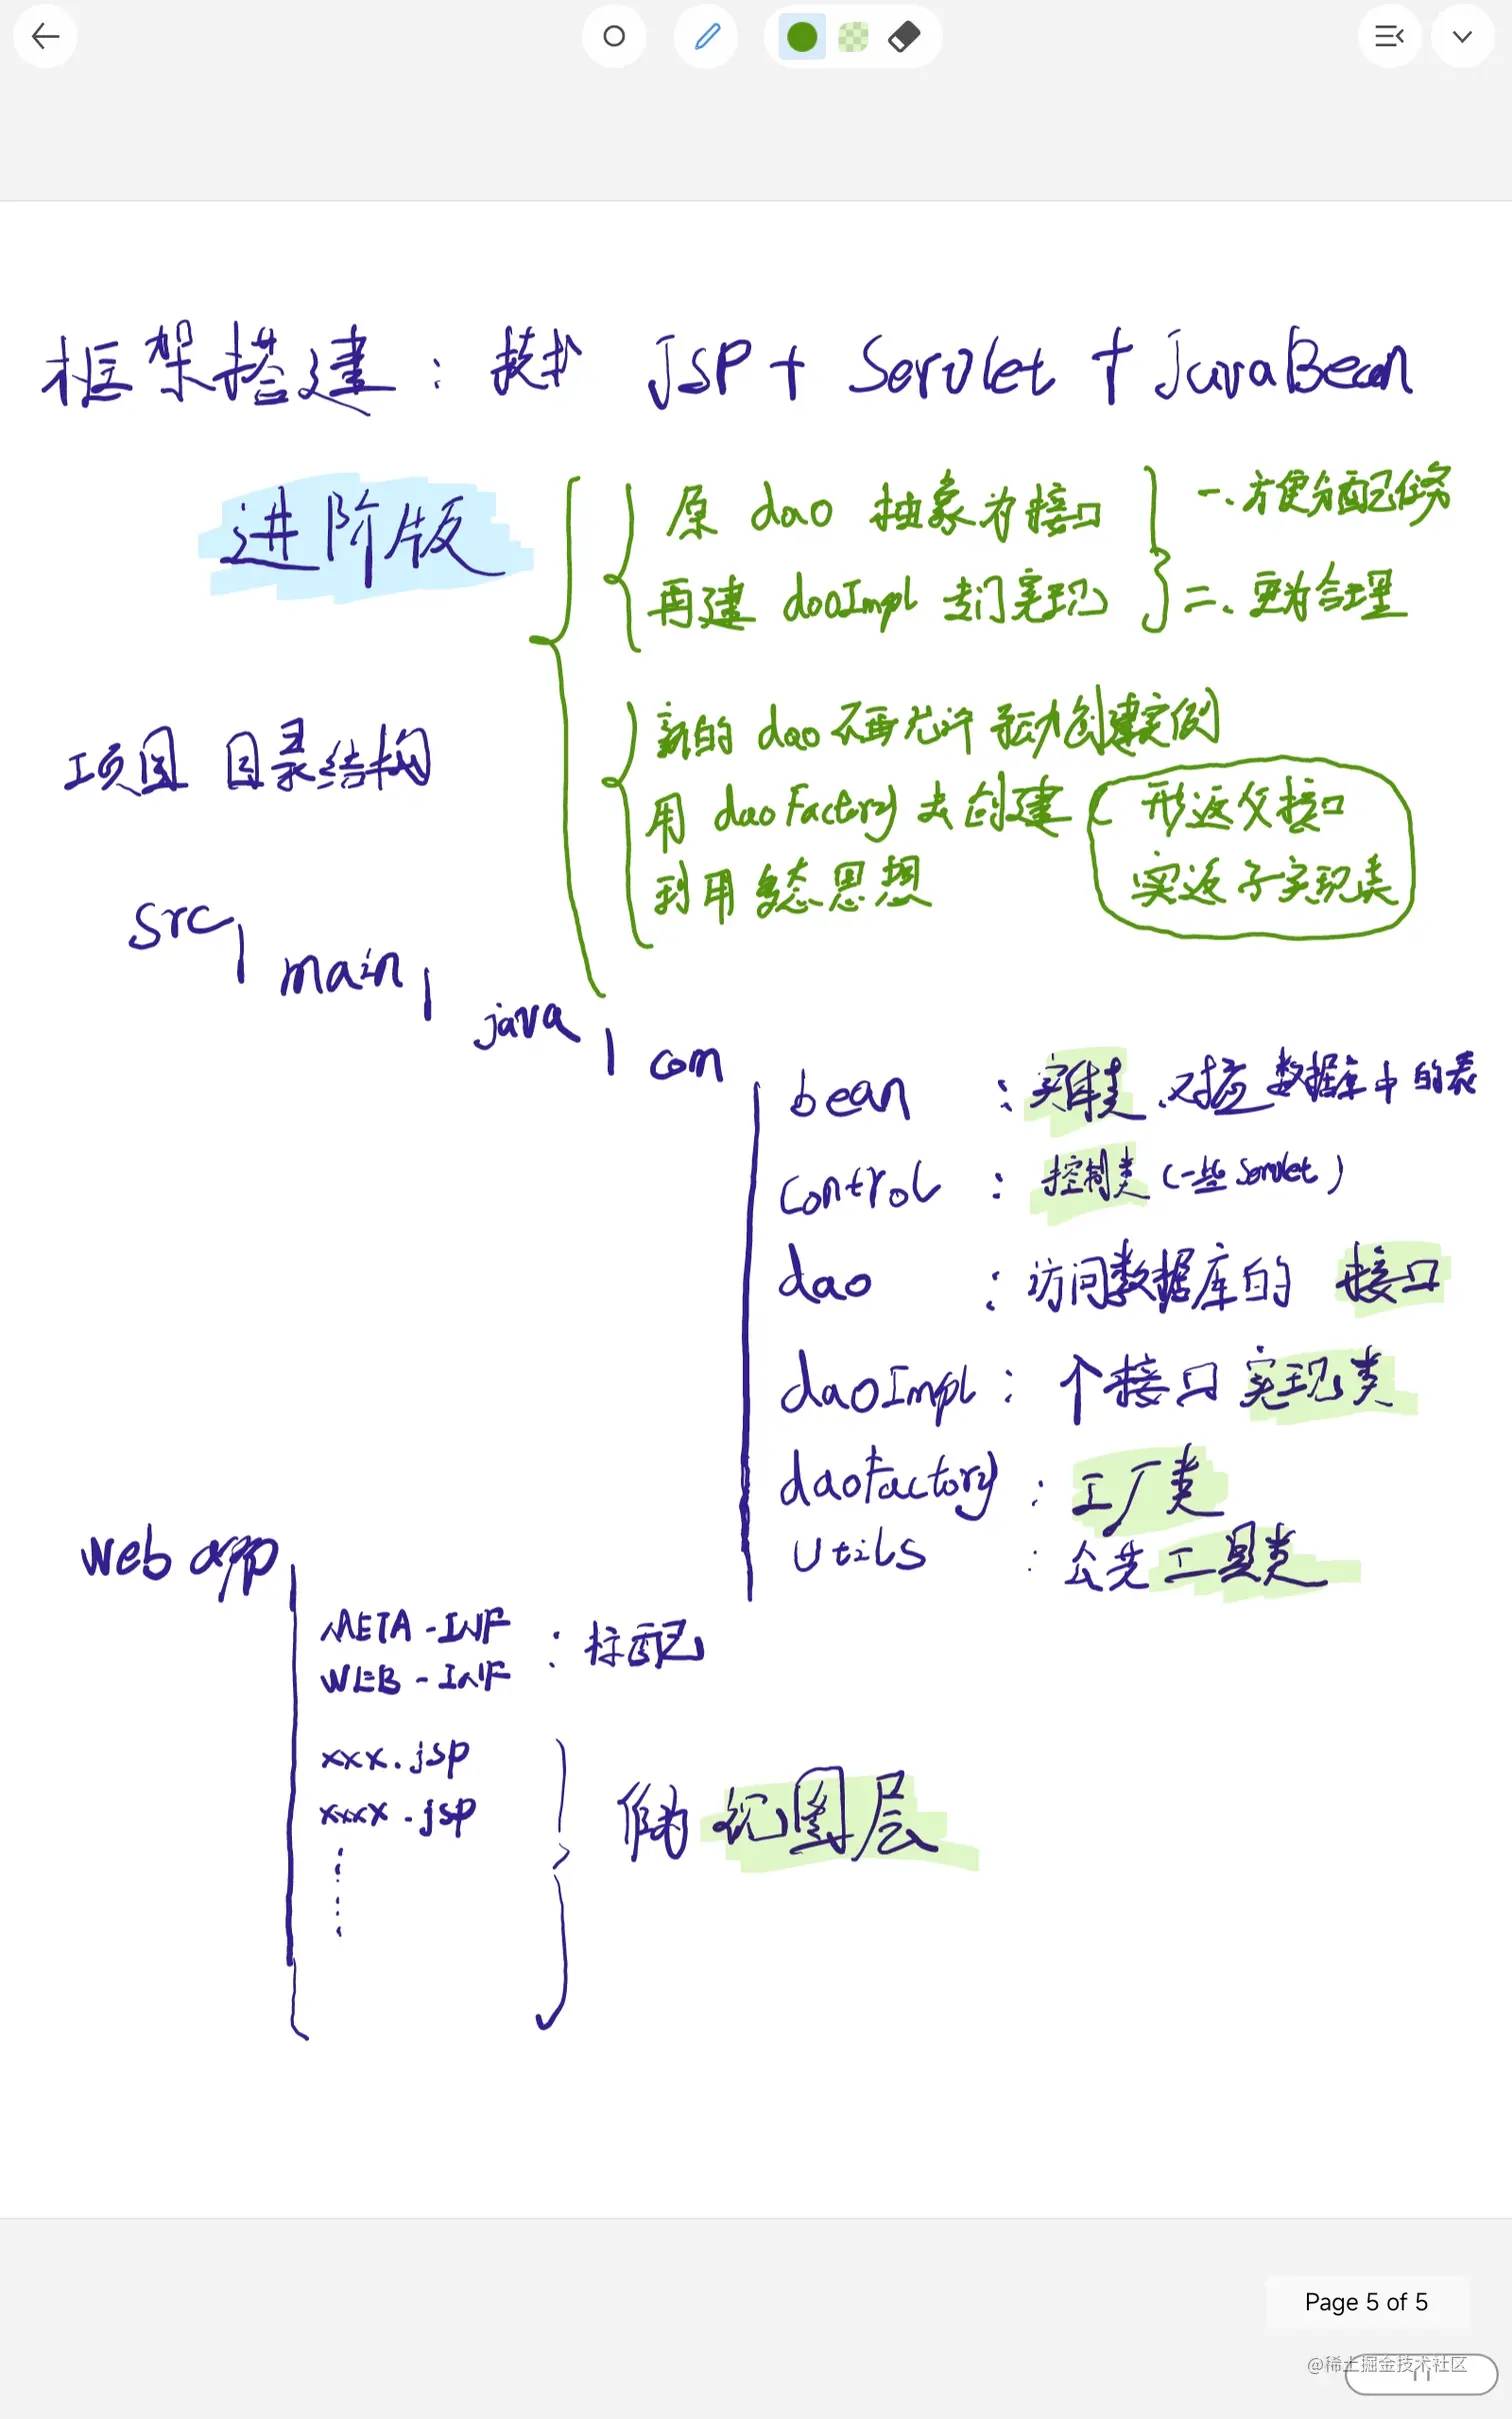 框架搭建：技术 JSP + Servlet + JavaBean
进阶版
原 dao 抽象为接口
再建 daoImpl 专门实现
一、方便分配任务
二、更为合理
新的 dao 不再允许手动创建实例
用 daoFactory 去创建
利用多态思想
形返父接口
实返子实现类
项目 目录结构
src
main
java
com
bean : 实体类、对应数据库中的表
control : 控制类（一些Servlet）
dao : 访问数据库的 接口
daoImpl : 个接口实现类
daoFactory : 工厂类
utils : 公共工具类
web app
META-INF
WEB-INF
: 标配
xxx.jsp
xxxx.jsp
做为 视图层
Page 5 of 5
@稀土掘金技术社区